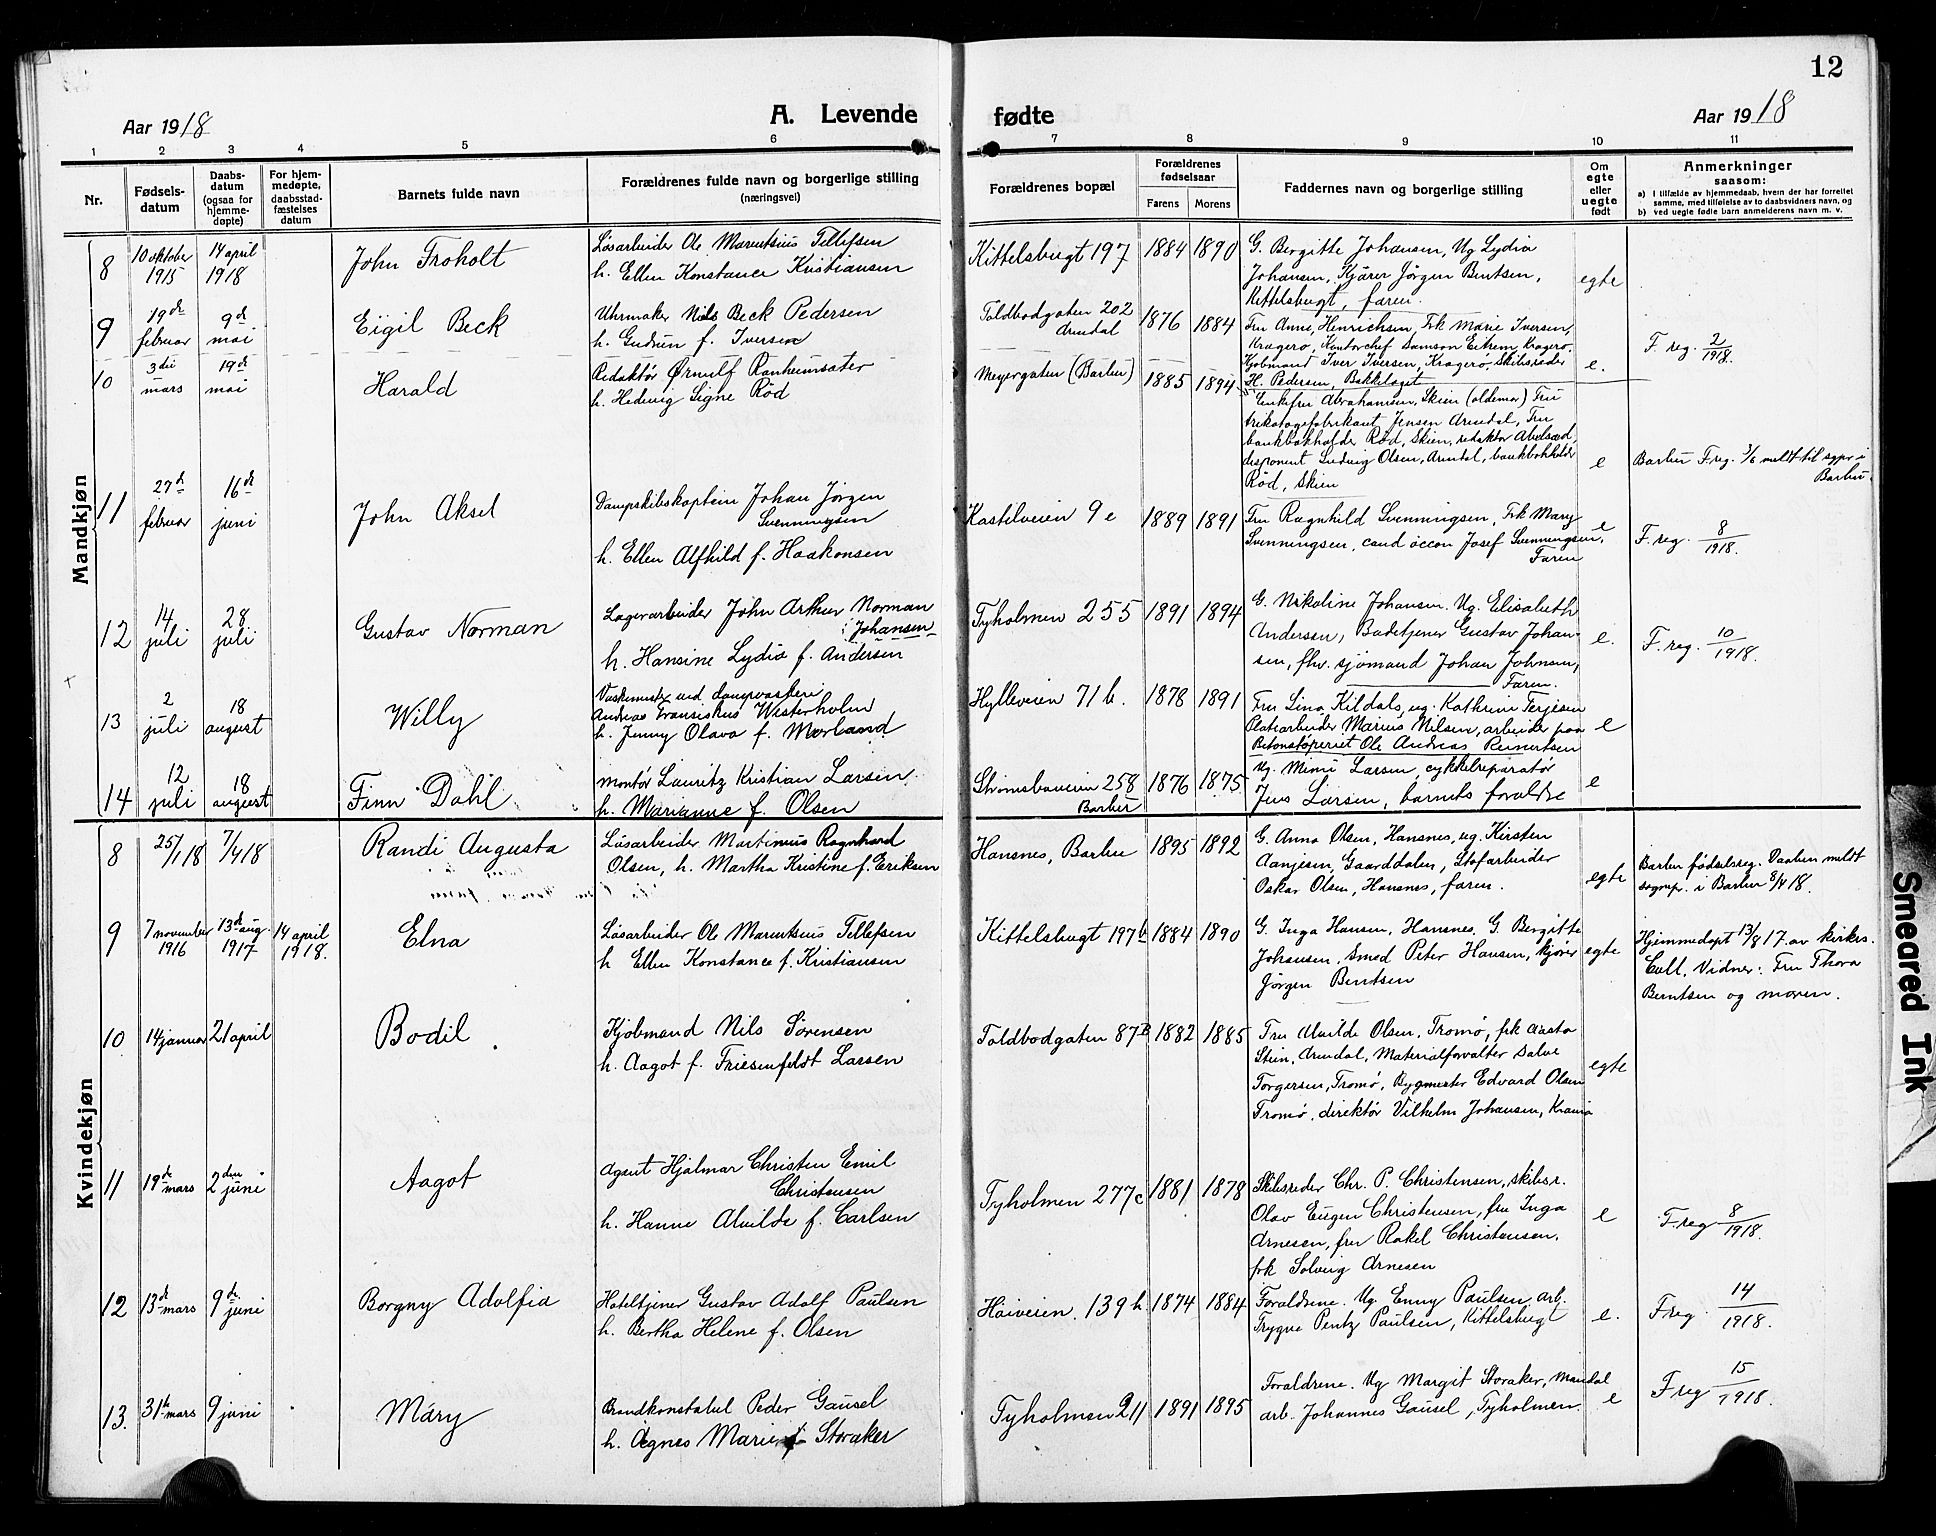 12
Aar 1918
A. Levende fødte
Aar 1918
1 2 3 4 5 6 7 8 9 10 11
Nr.
Fødsels-
datum
Daabs-
datum
(ogsaa for
hjemme-
døpte)
For hjem-
medøpte,
daabsstad-
fæstelses
datum
Barnets fulde navn
Forældrenes fulde navn og borgerlige stilling
(næringsvei)
Forældrenes bopæl
Forældrenes
fødselsaar
Farens Morens
Faddernes navn og borgerlige stilling
Om
egte
eller
uegte
født
Anmerkninger
saasom:
a) I tilfælde av hjemmedaab, hvem der har forrettet
samme, med tilføielse av to daabsvidners navn, og
b) ved uegte fødte barn anmelderens navn m. v.
Mandkjøn
8 10 oktober 1915 14 april 1918
John Froholt
Løsarbeider Ole Marentsius Tellefsen
h. Ellen Konstance Kristiansen
Kittelsbugt 197 1884 1890
G. Bergitte Johansen, Ug Lydia
Johansen, Kjører Jørgen Bentsen,
Kittelsbugt, faren.
egte
9 19de februar 9de mai
Eigil Beck
Uhrmaker Nils Beck Pedersen
h. Gudrun f. Iversen
Toldbodgaten 202
Arendal
1876 1884
Fru Anne Henrichsen, Frk Marie Iversen,
Kragerø, Kontorchef Samson Eitrem, Kragerø,
Kjøbmand Iver Iversen, Kragerø, Skibsreder
H. Pedersen, Bekkelaget
e.
F. reg. 2/1918.
10 3die mars 19de mai
Harald
Redaktør Ørnulf Ranheimsæter
h. Hedvig Signe Rød
Meyergaten (Barbu) 1885 1894
Enkefru Abrahamsen, Skien (oldemor) Fru
trikotagefabrikant Jensen Arendal, Fru
bankbokholder Rød, Skien, redaktør Abelsæd,
disponent Ludvig Olsen, Arendal, bankbokholder
Rød, Skien
e
Barbu F. reg. 7/6 meldt til sgpr i
Barbu.
11 27de februar 16de juni
John Aksel
Dampskibskaptein Johan Jørgen
Svenningsen
h. Ellen Alfhild f. Haakonsen
Kastelveien 9 e 1889 1891
Fru Ragnhild Svenningsen, Frk Mary
Svenningsen, cand oecon Josef Svenningsen,
Faren
e
F. reg. 8/1918.
12 14 juli 28 juli
Gustav Norman
Lagerarbeider John Arthur Norman
Johansen
h. Hansine Lydia f. Andersen
Tyholmen 255 1891 1894
G. Nikoline Johansen. Ug. Elisabeth
Andersen, Badetjener Gustav Johan-
sen, fhv. sjømand Johan Johnsen,
Faren.
e.
F. reg. 10/1918.
13 2 juli 18 august
Willy
Vaskemester ved dampvaskeri
Andreas Fransiskus Westerholm
h. Jenny Olava f. Morland
Hylleveien 71 b. 1878 1891
Fru Lina Kildals, ug. Kathrine Terjesen
Platearbeider Marius Nilsen, arbeider paa
Betonstøperiet Ole Andreas Reinertsen
e
14 12 juli 18 august
Finn Dahl
montør Lauritz Kristian Larsen
h. Marianne f. Olsen
Strømsbuveien 258
Barbu
1876 1875
Ug. Mimi Larsen, cykkelreparatør
Jens Larsen, barnets forældre
e
Kvindekjøn
8 25/1 18 7/4 18
Randi Augusta
Løsarbeider Martinius Ragnhard
Olsen, h. Martha Kristine f. Eriksen
Hansnes, Barbu 1895 1892
G. Anna Olsen, Hansnes, ug. Kirsten
Aanjesen, Gaarddalen, Stofarbeider
Oskar Olsen, Hansnes, faren.
egte
Barbu fødselsreg. Daaben meldt
sognepr. i Barbu 8/4 18.
9 7 november 1916 13de aug. 1917 14 april 1918.
Elna
Løsarbeider Ole Marentsius Tellefsen
h Ellen Konstance f. Kristiansen
Kittelsbugt 197b 1884 1890
G. Inga Hansen, Hansnes, G. Bergitte
Johansen, Smed Peter Hansen, kjører
Jørgen Bentsen
egte
Hjemmedøpt 13/8 17. av kirkes.
Call. Vidner: Fru Thora
Berntsen og moren.
10 14 januar 21 april
Bodil
Kjøbmand Nils Sørensen
h. Aagot f. Friesenfeldt Larsen
Toldbodgaten 87B 1882 1885
Fru Alvilde Olsen, Tromø, frk Aasta
Stein, Arendal, Materialforvalter Salve
Torgersen, Tromø, Bygmester Edvard Olsen
Tromø, direktør Vilhelm Johansen, Krania
egte
11 19de mars 2den juni
Aagot
Agent Hjalmar Christen Emil
Christensen
h. Hanne Alvilde f. Carlsen
Tyholmen 277c 1881 1878
Skibsreder Chr. P. Christensen, skibsr.
Olav Eugen Christensen, fru Inga
Arnesen, fru Rakel Christensen,
frk Solveig Arnesen
e
F. reg 8/1918.
12 13de mars 9de juni
Borgny Adolfia
Hoteltjener Gustav Adolf Paulsen
h. Bertha Helene f. Olsen
Høiveien. 139 h. 1874 1884
Forældrene. Ug. Enny Paulsen, arb.
Trygve Pentz Paulsen, Kittelsbugt
e.
F reg. 14/1918.
13. 31te mars 9 juni
Mary
Brandkonstabel Peder Gausel
h. Agnes Marie f Storaker
Tyholmen 211 1891 1895
Forældrene. Ug Margit Storaker, Mandal
arb. Johannes Gausel, Tyholmen.
e
F reg 15/1918.
Smeared Ink